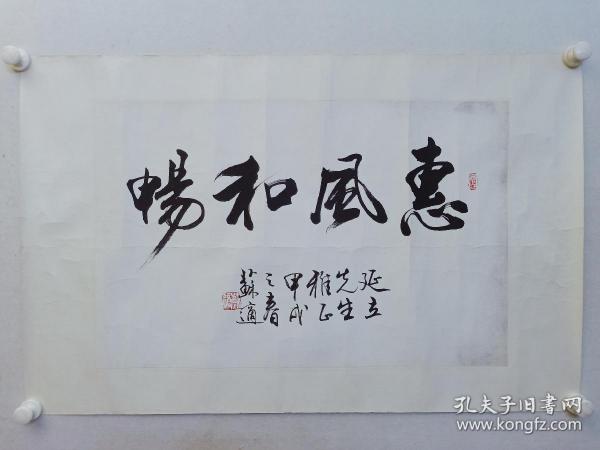 惠風和暢
延立
先生
雅正
甲戌
之春
蘇適
孔夫子旧书网
www.kongfz.com